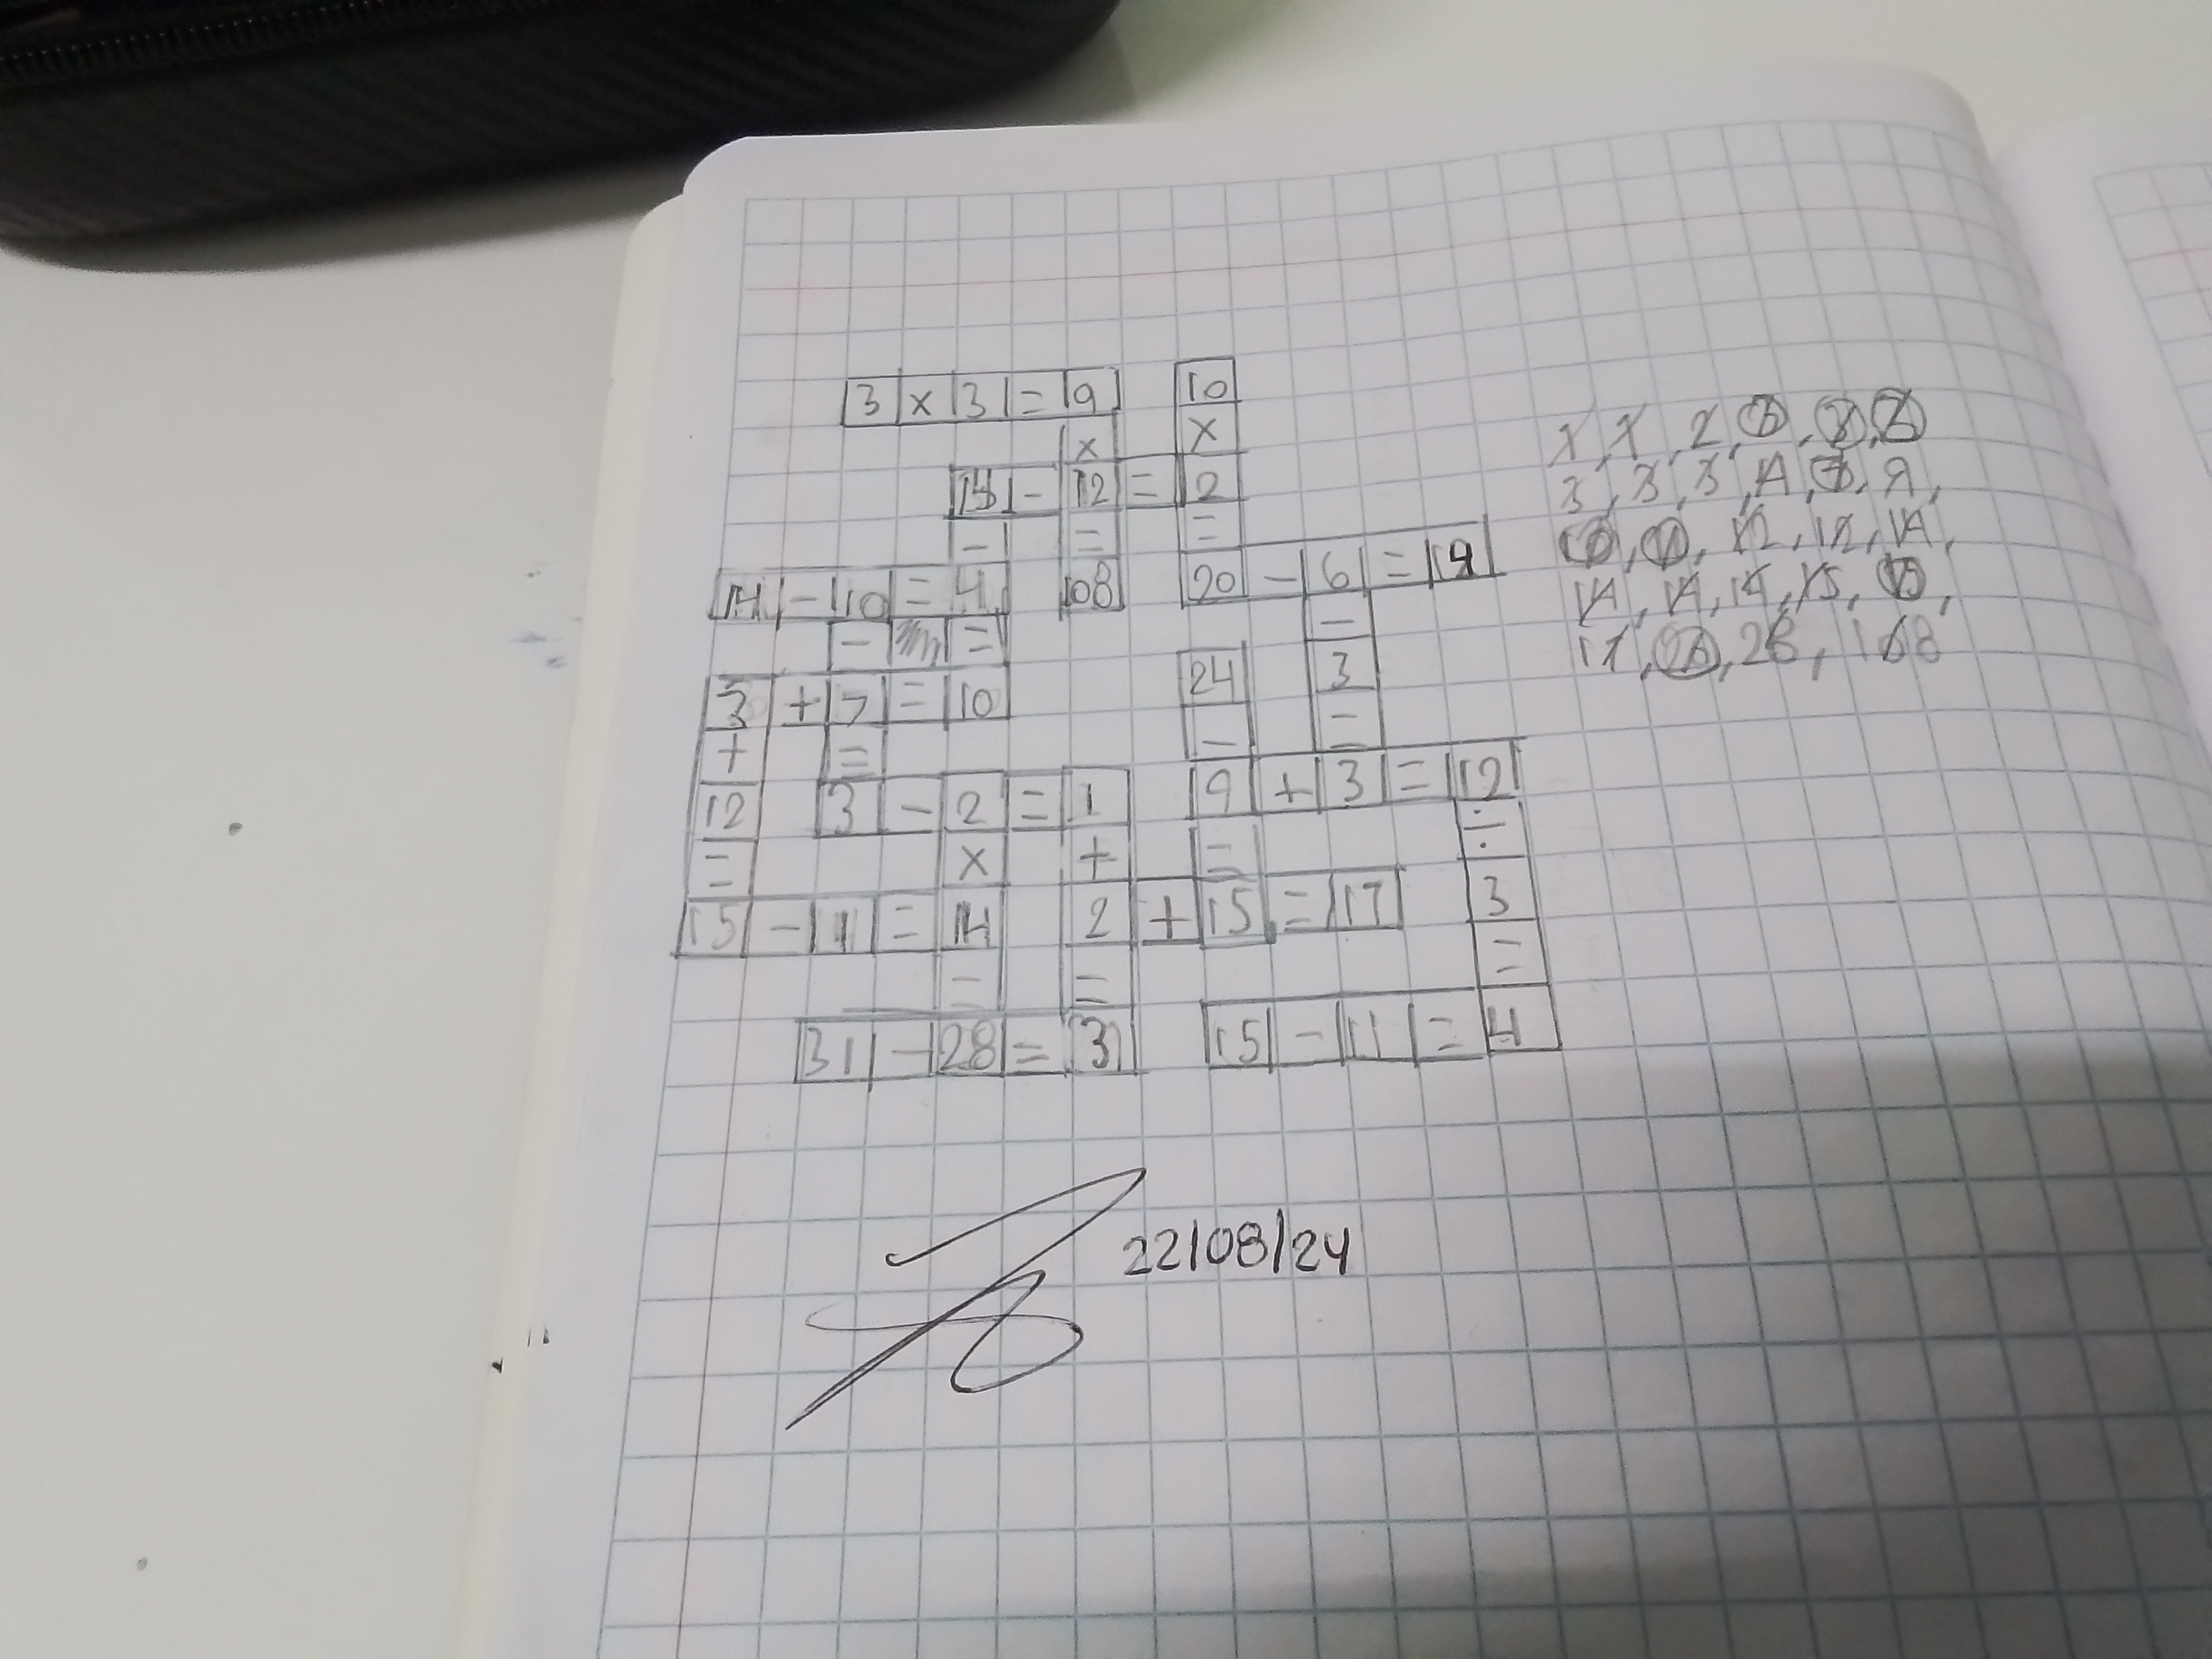 3 x 3 = 9 10
x x
14 - 12 = 2
- = =
14 - 10 = 4 108 20 - 6 = 14
- = -
3 + 7 = 10 24 3
+ = - =
12 3 - 2 = 1 9 + 3 = 12
= x + = ÷
15 - 1 = 14 2 + 15 = 17 3
= = =
31 - 28 = 3 15 - 11 = 4
1, 1, 2, 2, 2
3, 3, 3, 4, 7, 9,
12, 12, 14,
14, 14, 14, 15, 15,
17, 28, 108
22/08/24